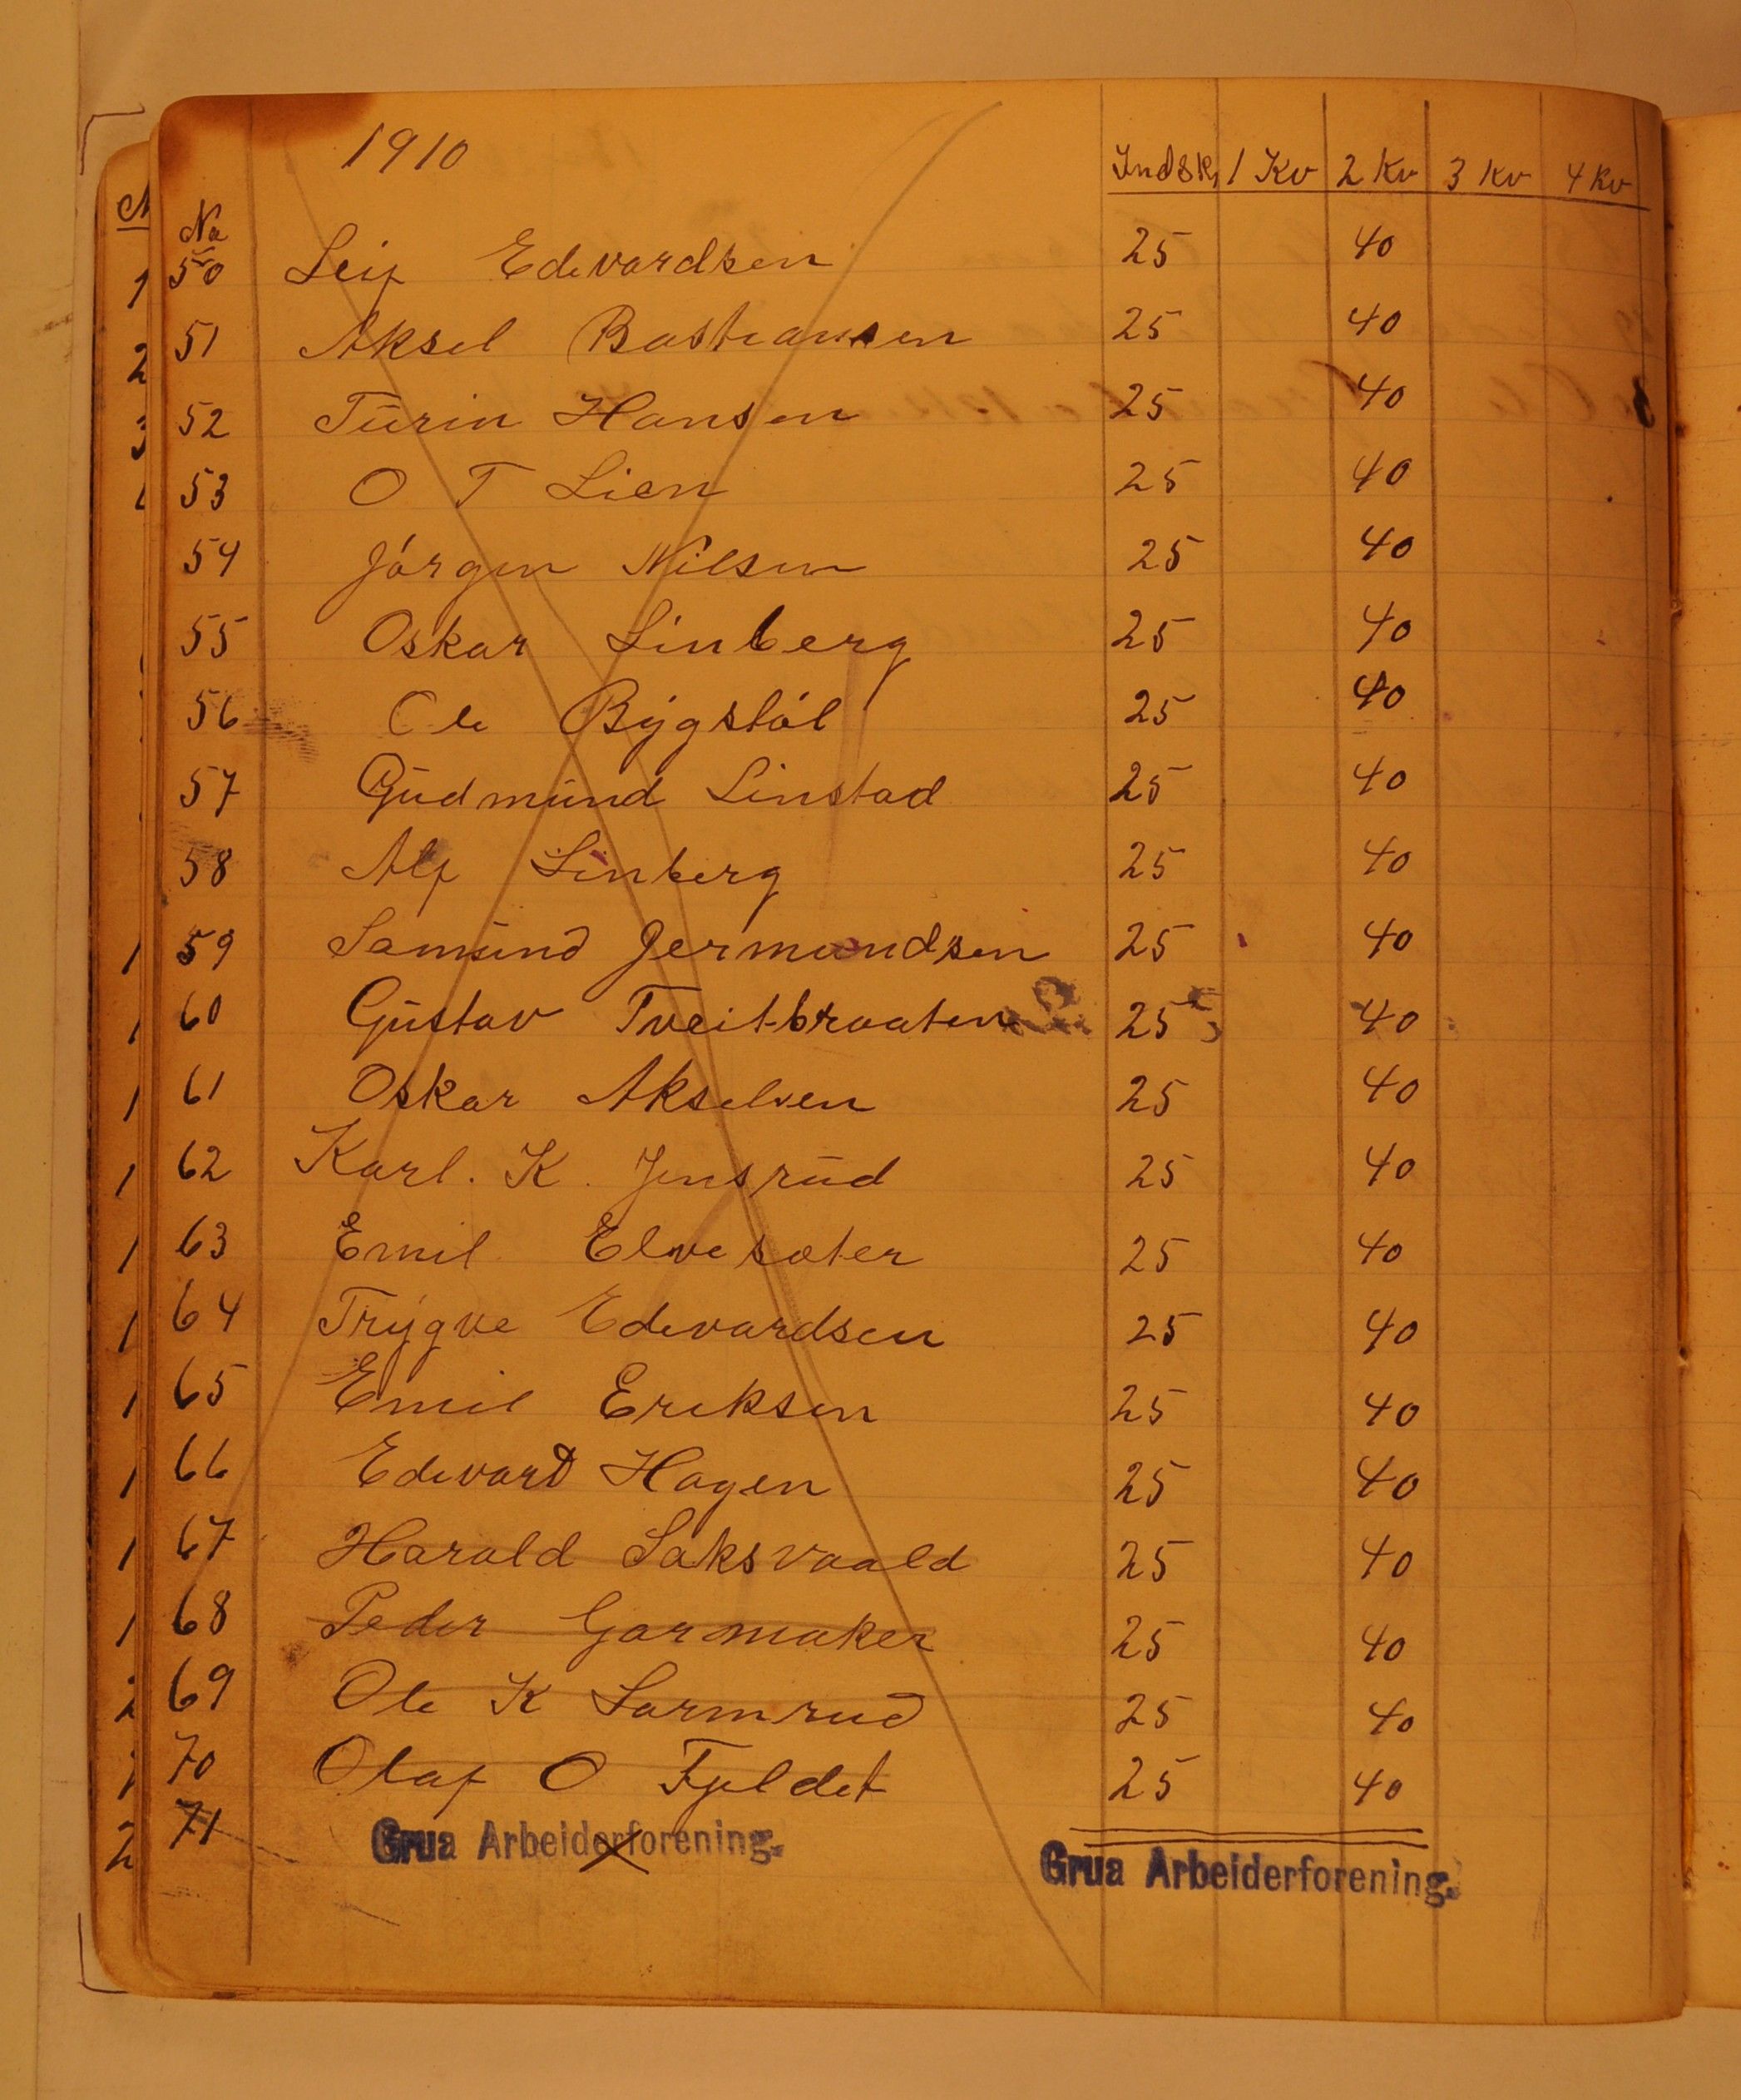 1910 Indsk. 1 Kv 2 Kv 3 Kv 4 Kv
No
50 Leif Edevardsen 25 40
51 Aksel Bastiansen 25 40
52 Turin Hansen 25 40
53 O T Lien 25 40
54 Jórgen Nilsen 25 40
55 Oskar Linberg 25 40
56 Ole Bygstól 25 40
57 Gudmund Linstad 25 40
58 Alf Linberg 25 40
59 Samund Germundsen 25 40
60 Gustav Tveitbraaten 25 40
61 Oskar Akselsen 25 40
62 Karl. K. Jensrud 25 40
63 Emil Elvesæter 25 40
64 Trygve Edevardsen 25 40
65 Emil Eriksen 25 40
66 Edevard Hagen 25 40
67 Harald Saksvaald 25 40
68 Peder Garmaker 25 40
69 Ole K Larmrud 25 40
70 Olaf O Fjeldet 25 40
71 Grua Arbeiderforening.
Grua Arbeiderforening.